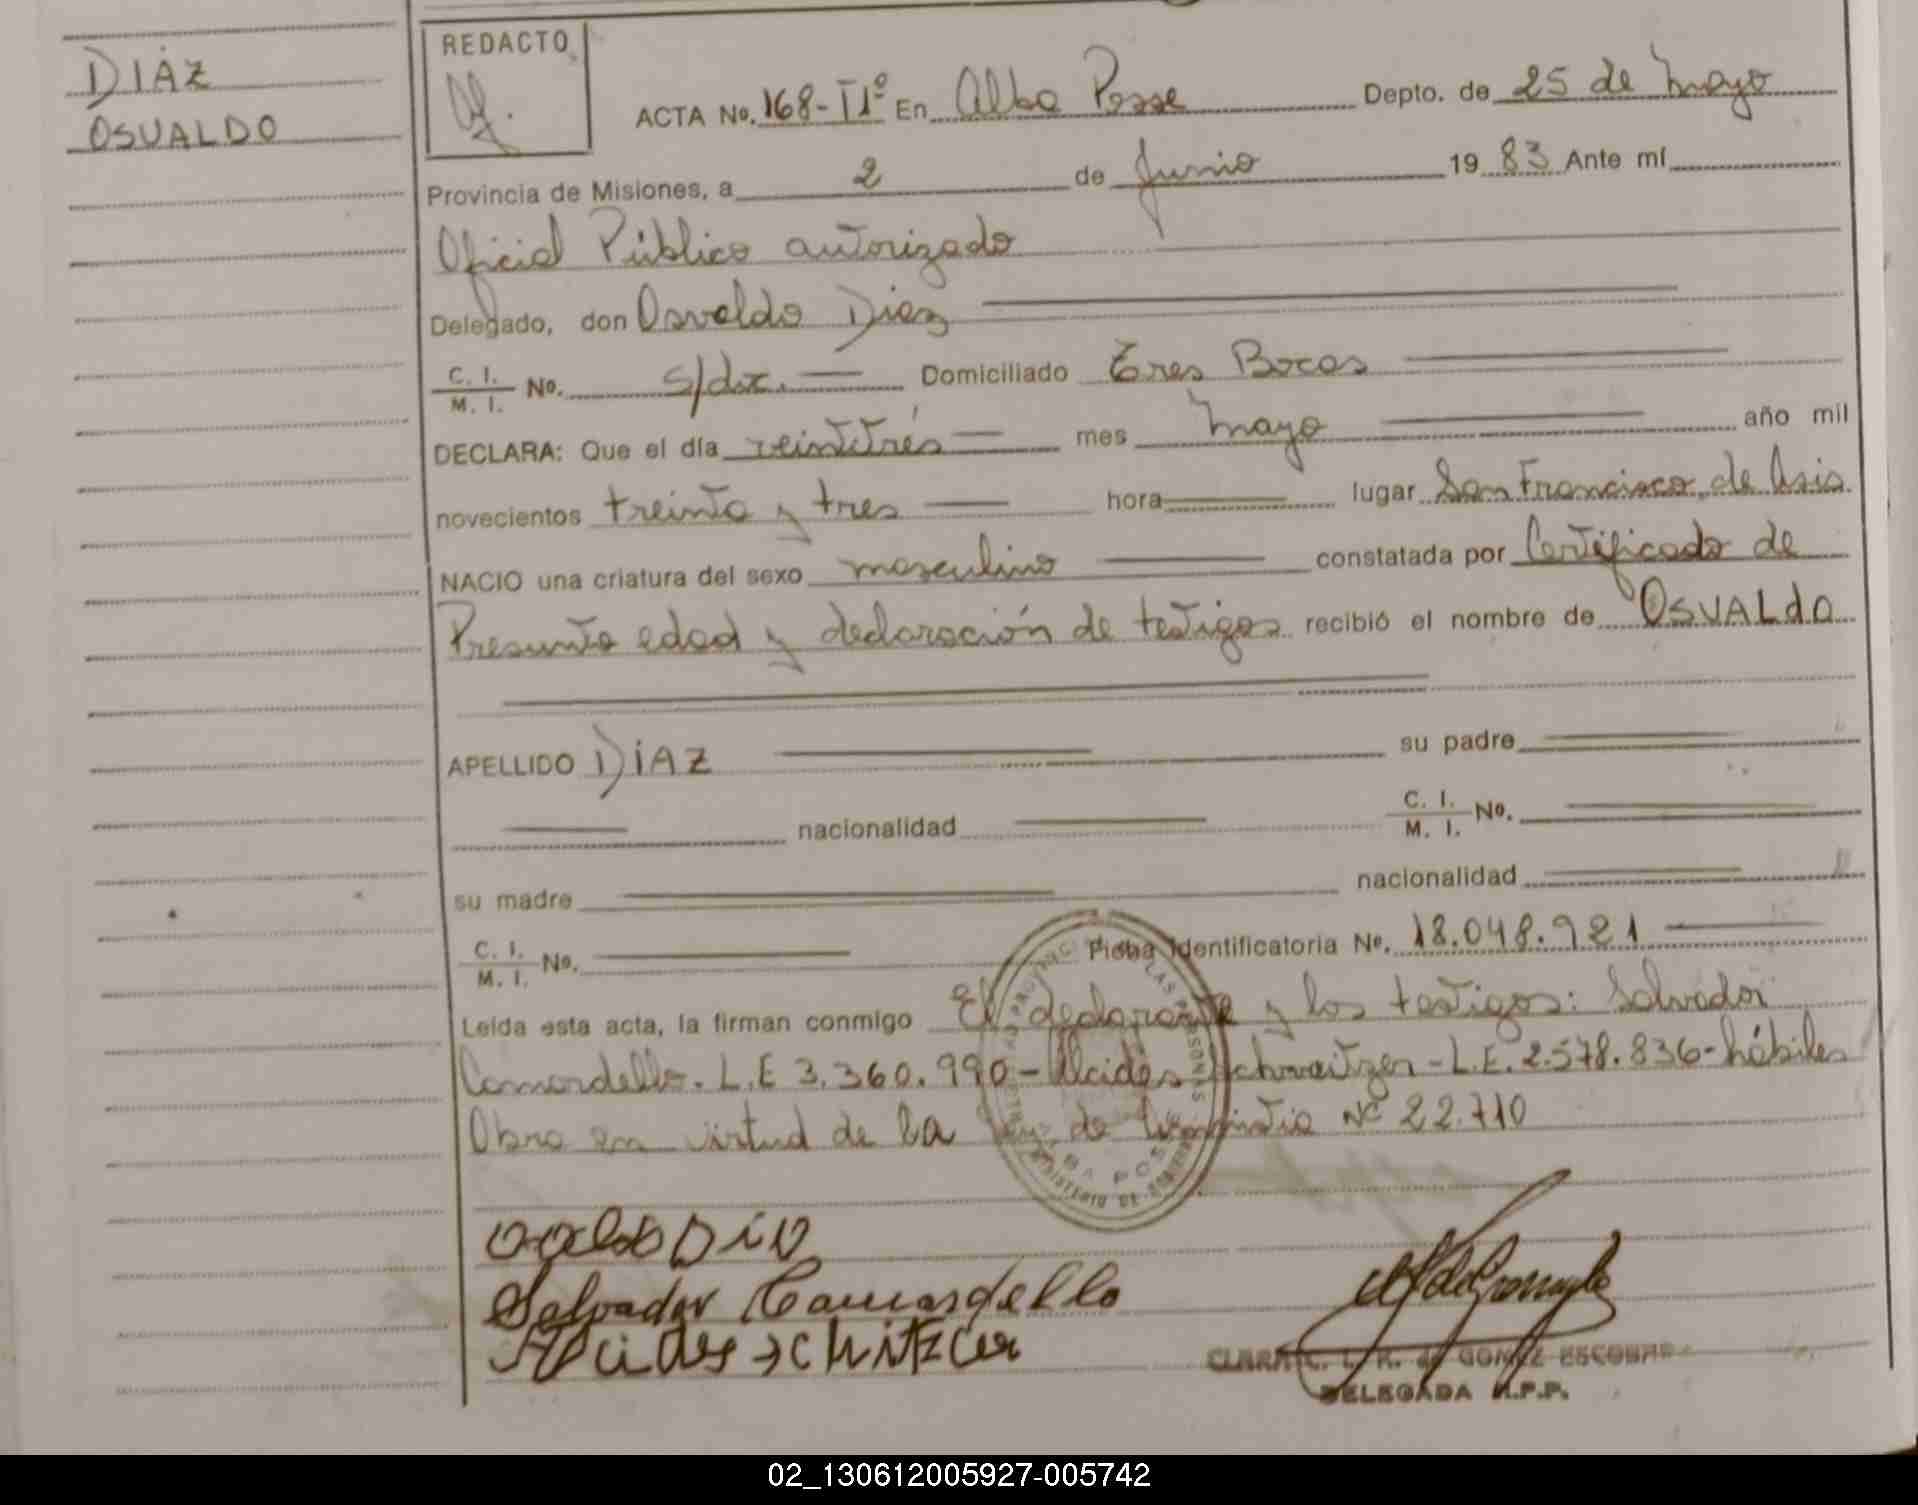 DIAZ
OSVALDO
REDACTO
ACTA No. 168-IIº En Alba Posse Depto. de 25 de Mayo
Provincia de Misiones, a 2 de Junio 19 83 Ante mí
Oficial Público autorizado
Delegado, don Osvaldo Diaz
C. I. / M. I. No. s/dx. Domiciliado Tres Bocas
DECLARA: Que el día veintitrés mes Mayo año mil
novecientos treinta y tres hora lugar San Francisco de Asis
NACIO una criatura del sexo masculino constatada por Certificado de
Presunta edad y declaración de testigos recibió el nombre de OSVALdO
APELLIDO DiAZ su padre
nacionalidad C. I. / M. I. No.
su madre nacionalidad
C. I. / M. I. No. Ficha Identificatoria No. 18.048.921
Leída esta acta, la firman conmigo El declarante y los testigos: Salvador
Camardello. L.E 3.360.990 - Alcides Schwaitzer - L.E. 2.578.836 - hábiles
Obra en virtud de la Ley de Amnistia Nº 22.710
Salvador Camardello
Alcides schwitzer
CLARA C. L. R. de GOMEZ ESCOBAR
DELEGADA R.P.P.
02_130612005927-005742